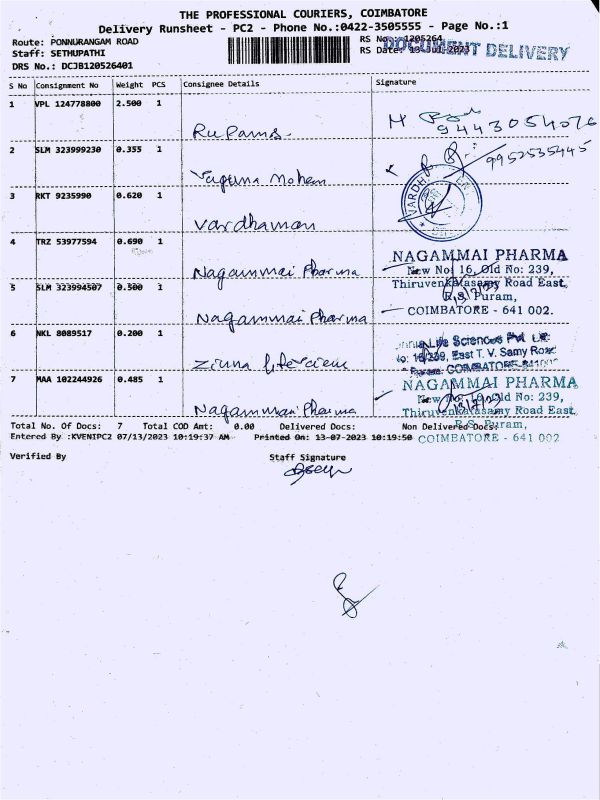 THE PROFESSIONAL COURIERS, COIMBATORE
Delivery Runsheet - PC2 - Phone No.:0422-3505555 - Page No.:1
Route: PONNURANGAM ROAD
RS No.: 1205264
Staff: SETHUPATHI
RS Date: 13-Jul-2023
DOCUMENT DELIVERY
DRS No.: DCJB120526401
S No Consignment No Weight PCS Consignee Details Signature
1 VPL 124778800 2.500 1
9443054076
2 SLM 323999230 0.355 1
9952535445
3 RKT 9235990 0.620 1 Vardhaman
VARDH
4 TRZ 53977594 0.690 1 Nagammai Pharma
NAGAMMAI PHARMA
New No: 16, Old No: 239,
5 SLM 323994507 0.300 1 Nagammai Pharma
Thiruvenkatasamy Road East,
R.S. Puram,
COIMBATORE - 641 002.
6 NKL 8089517 0.200 1
Life Sciences Pvt
East T. V. Samy Road
COIMBATORE
7 MAA 102244926 0.485 1 Nagammai Pharma
NAGAMMAI PHARMA
New No: 16, Old No: 239,
Thiruvenkatasamy Road East,
R.S. Puram,
COIMBATORE - 641 002
Total No. Of Docs: 7 Total COD Amt: 0.00 Delivered Docs: Non Delivered Docs:
Entered By :KVENIPC2 07/13/2023 10:19:37 AM Printed On: 13-07-2023 10:19:50
Verified By Staff Signature